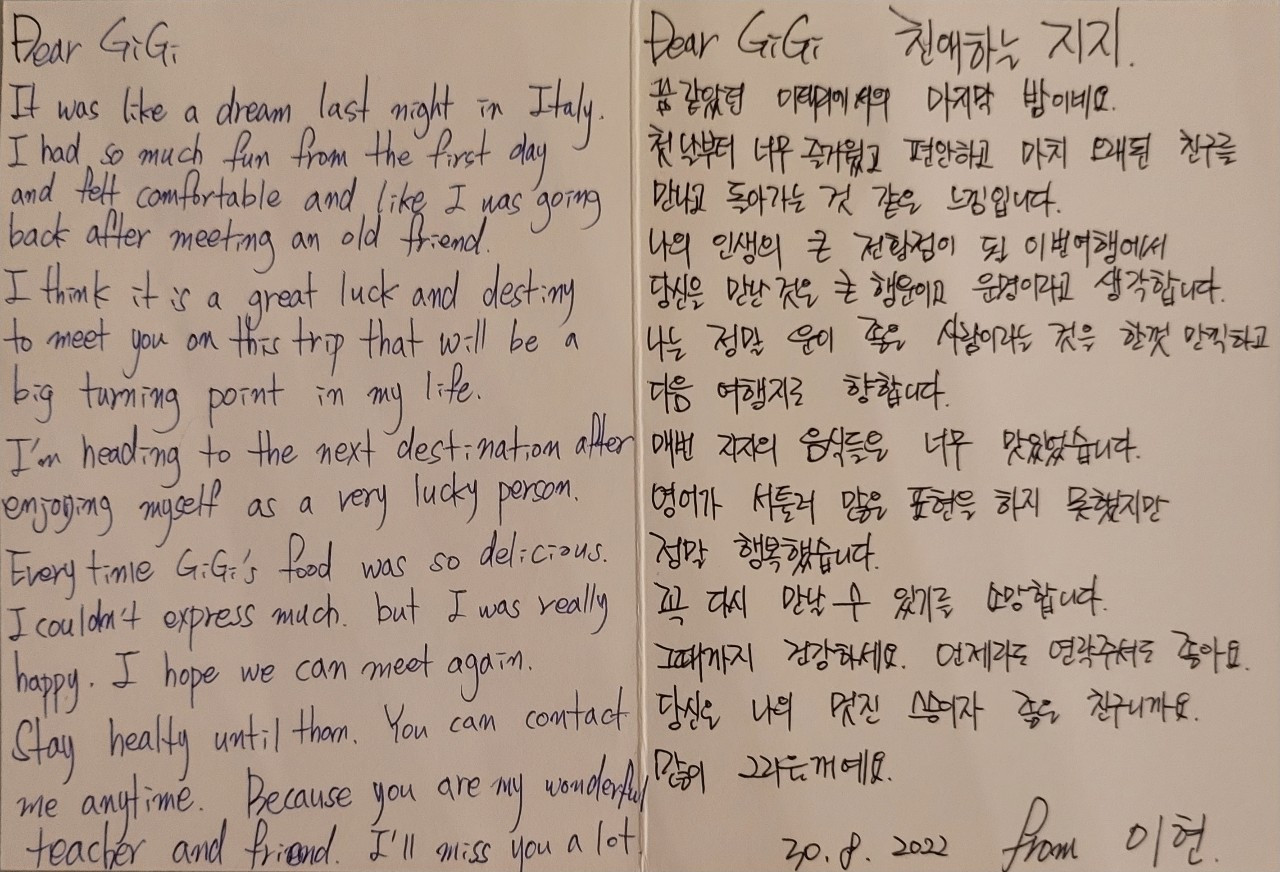 Dear GiGi
It was like a dream last night in Italy.
I had so much fun from the first day
and felt comfortable and like I was going
back after meeting an old friend.
I think it is a great luck and destiny
to meet you on this trip that will be a
big turning point in my life.
I'm heading to the next destination after
enjoying myself as a very lucky person.
Every time GiGi's food was so delicious.
I couldn't express much. but I was really
happy. I hope we can meet again.
Stay healty until then. You can contact
me anytime. Because you are my wonderful
teacher and friend. I'll miss you a lot.
Dear GiGi 친애하는 지지.
꿈 같았던 이태리에서의 마지막 밤이네요.
첫 날부터 너무 즐거웠고 편안하고 마치 오래된 친구를
만나고 돌아가는 것 같은 느낌입니다.
나의 인생의 큰 전환점이 될 이번여행에서
당신을 만난 것은 큰 행운이고 운명이라고 생각합니다.
나는 정말 운이 좋은 사람이라는 것을 한껏 만끽하고
다음 여행지로 향합니다.
매번 지지의 음식들은 너무 맛있었습니다.
영어가 서툴러 많은 표현을 하지 못했지만
정말 행복했습니다.
꼭 다시 만날 수 있기를 소망합니다.
그때까지 건강하세요. 언제라도 연락주셔도 좋아요.
당신은 나의 멋진 스승이자 좋은 친구니까요.
많이 그리울꺼예요.
30. 8. 2022 from 이현.